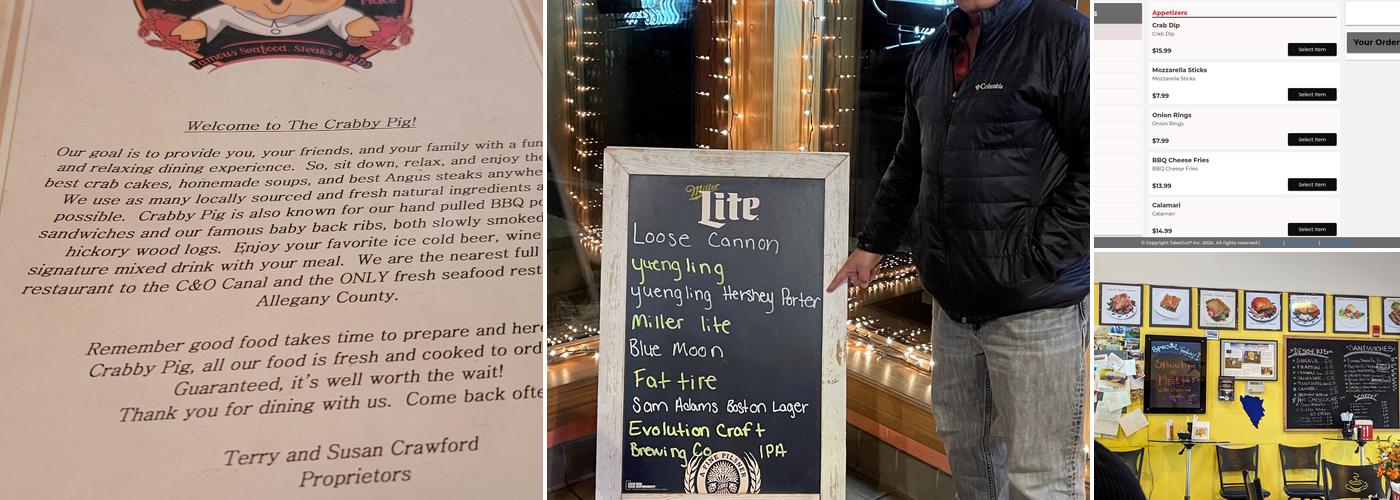 Place
Famous Seafood, Steaks & Ribs
Welcome to The Crabby Pig!
Our goal is to provide you, your friends, and your family with a fun
and relaxing dining experience. So, sit down, relax, and enjoy the
best crab cakes, homemade soups, and best Angus steaks anywhe
We use as many locally sourced and fresh natural ingredients a
possible. Crabby Pig is also known for our hand pulled BBQ po
sandwiches and our famous baby back ribs, both slowly smoked
hickory wood logs. Enjoy your favorite ice cold beer, wine
signature mixed drink with your meal. We are the nearest full
restaurant to the C&O Canal and the ONLY fresh seafood rest
Allegany County.
Remember good food takes time to prepare and here
Crabby Pig, all our food is fresh and cooked to ord
Guaranteed, it's well worth the wait!
Thank you for dining with us. Come back ofte
Terry and Susan Crawford
Proprietors
Columbia
Miller
Lite
Loose Cannon
yuengling
yuengling Hershey Porter
Miller lite
Blue Moon
Fat tire
Sam Adams Boston Lager
Evolution Craft
Brewing Co IPA
A FINE PILSNER
s
Appetizers
Crab Dip
Crab Dip
$15.99
Select Item
Mozzarella Sticks
Mozzarella Sticks
$7.99
Select Item
Onion Rings
Onion Rings
$7.99
Select Item
BBQ Cheese Fries
BBQ Cheese Fries
$13.99
Select Item
Calamari
Calamari
$14.99
Select Item
Your Order
© Copyright TakeOut7 Inc. 2024. All rights reserved |
Special Today!
DESSERTS
SANDWICHES